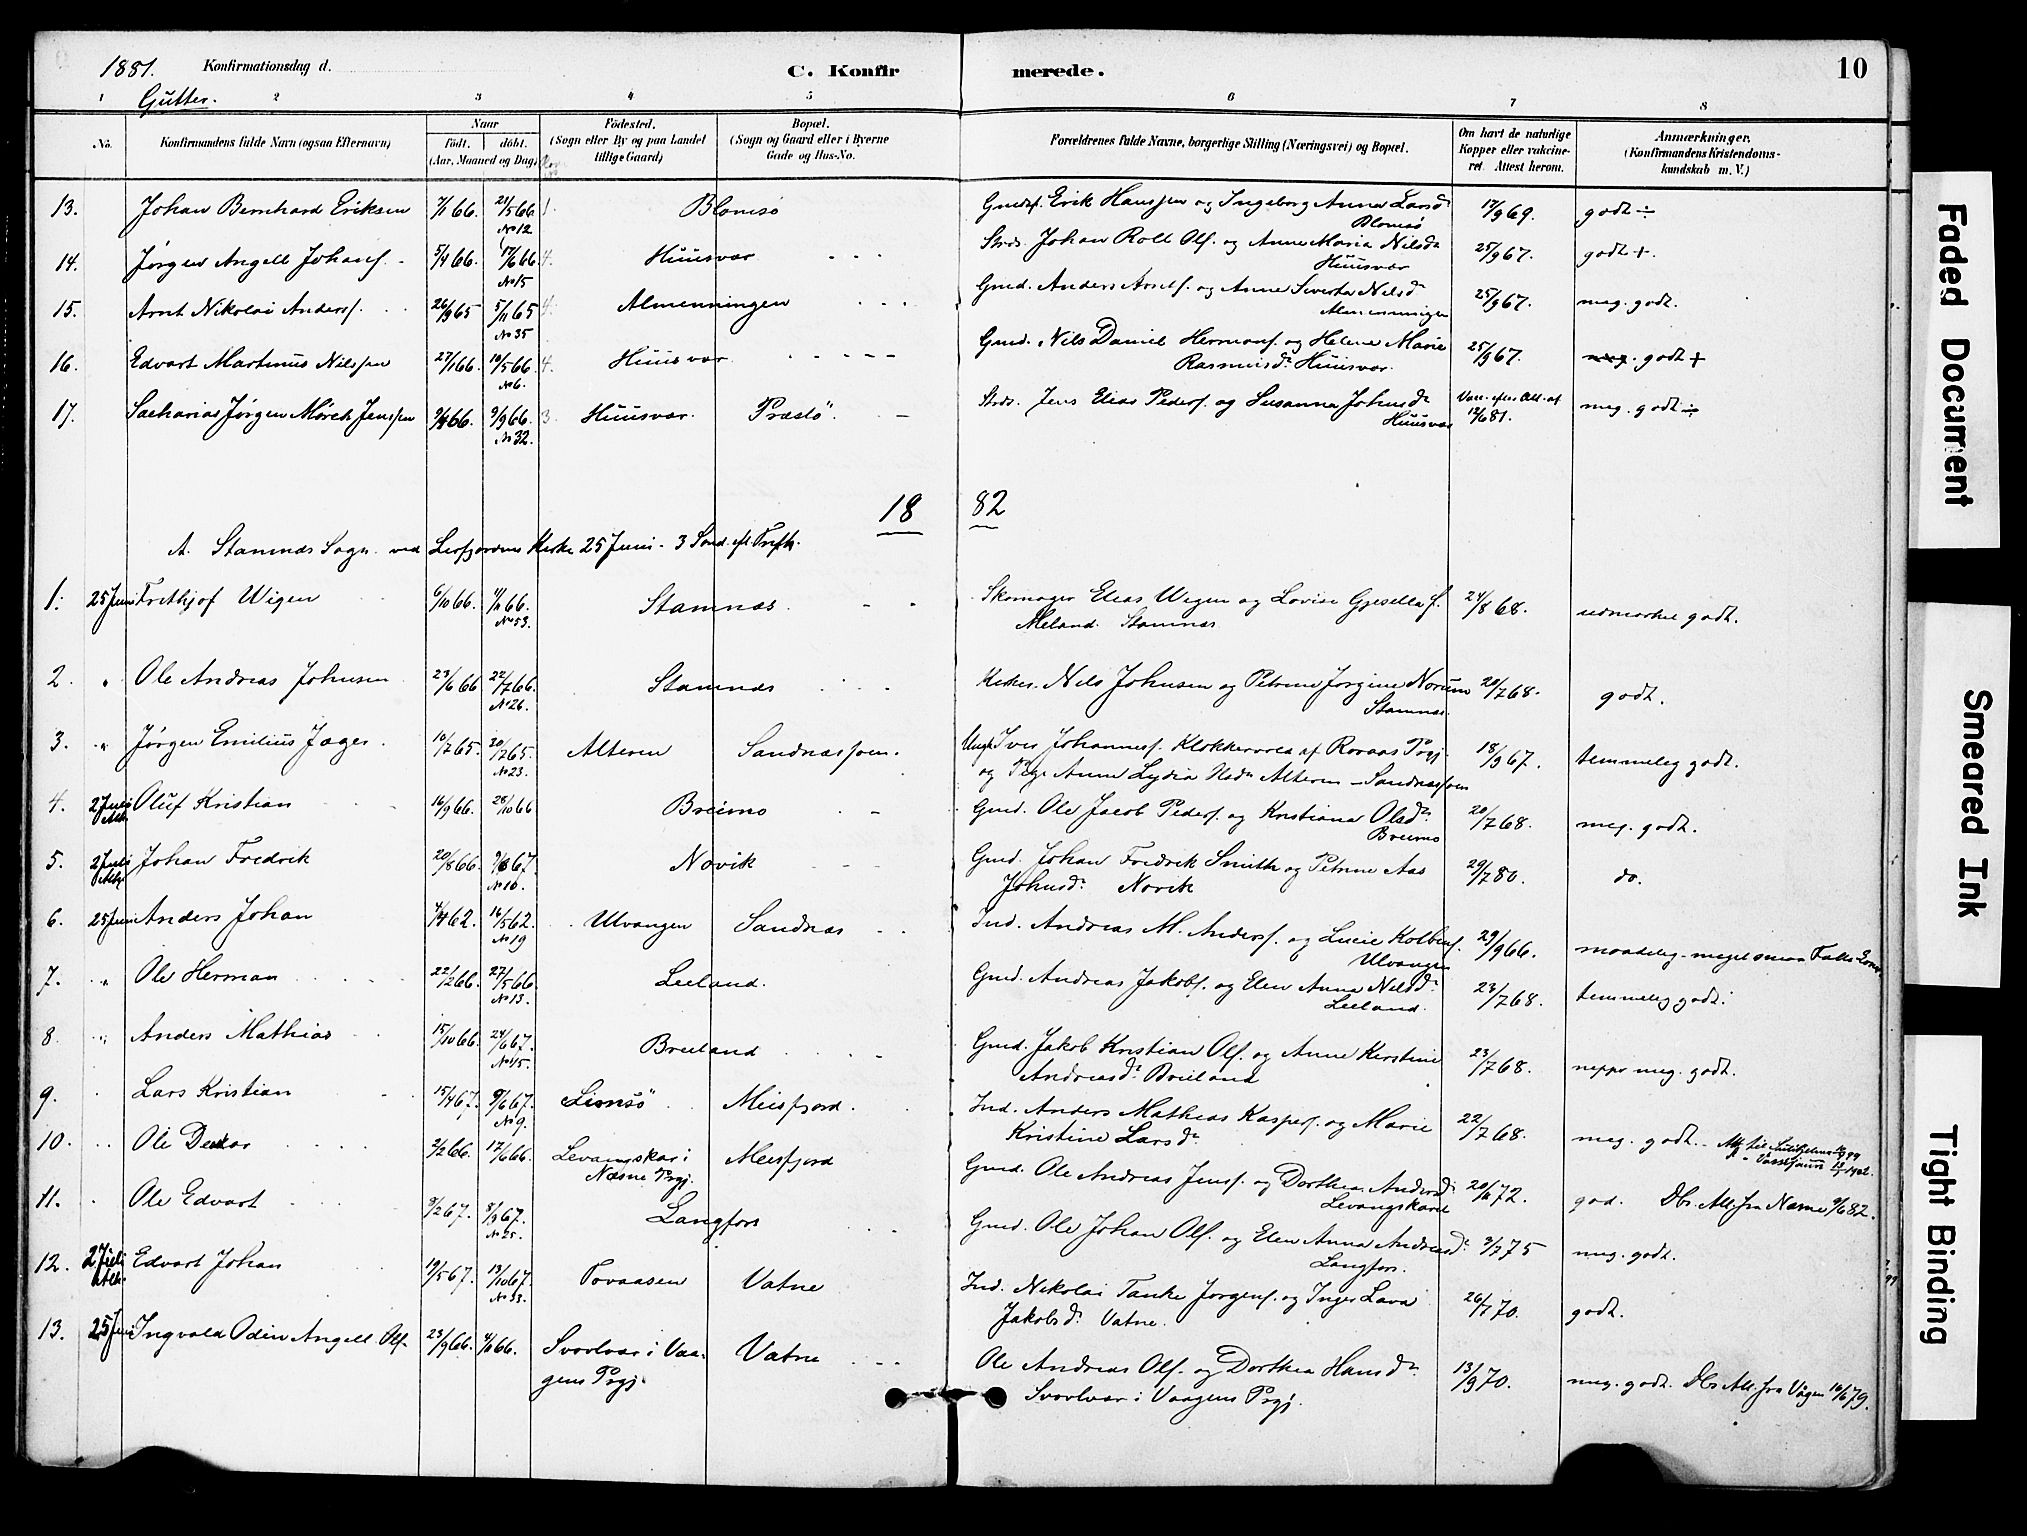 1881. Konfirmationsdag d. C. Konfirmerede. 10
Gutter.
1 2 3 4 5 6 7 8
No. Konfirmandens fulde Navn (ogsaa Efternavn) Naar født. døbt. (Aar, Maaned og Dag) Fødested. (Sogn eller By og paa Landet tillige Gaard) Bopæl. (Sogn og Gaard eller i Byerne Gade og Hus-No. Forældrenes fulde Navne, borgerlige Stilling (Næringsvei) og Bopæl. Om havt de naturlige Kopper eller vakcineret Attest herom. Anmærkninger. (Konfirmandens Kristendomskundskab m. V.)
13. Johan Bernhard Eriksen 7/1 66. 21/5 66. No 12 1. Blomsø Gmdsf. Erik Hanssen og Ingeborg Anna Larsdr Blomsø 17/9 69. godt ÷
14. Jørgen Angell Johansf. 5/4 66. 17/6 66. No 15 4. Huusvær Strds. Johan Roll Olf. og Anne Maria Nilsdr Huusvær 25/9 67. godt +.
15. Arnt Nikolai Andersf. 26/9 65 5/11 65 No 35 4. Almenningen Gmd. Anders Arntsf. og Anne Siverta Nilsdr Almenningen 25/9 67. meg. godt.
16. Edvart Martinus Nilssen 27/1 66. 10/5 66. No 6. 4. Huusvær Gmd. Nils Daniel Hermansf. og Helene Marie Rasmusdr Huusvær. 25/9 67. meg. godt +
17. Sacharias Jørgen Mørch Jenssen 9/4 66. 9/9 66. No 32. 3. Huusvær. Præstø Strds. Jens Elias Pedersf. og Susanna Johnsdr Huusvær Vacc. efter Att. af 12/6 81. meg. godt ÷
1882
A. Stamnæs Sogn ved Leifjordens Kirke 25 Juni - 3 Sønd. eft. Trefh.
1. 25 Juni Frithjof Wigen 6/10 66. 11/11 66. No 53. Stamnæs. Skomager Elias Wigen og Lovise Gjesella f. Meland. Stamnæs 24/8 68. udmærket godt.
2. " Ole Andreas Johnsen 23/6 66 22/7 66. No 26. Stamnæs Kirkes. Nils Johnsen og Petrine Jørgine Norum Stamnæs. 20/7 68. godt.
3. " Jørgen Emilius Jager. 10/7 65. 30/7 65. No 23. Alteren Sandnæssøen. Ungk. Iver Johannesf. Klokkervola af Roraas Prgj. og Pige Anne Lydia Nedr Alteren - Sandnæssøen 18/9 67. temmelig godt.
4. 2 Juli Oluf Kristian 16/9 66. 28/10 66 Breimo Gmd. Ole Jacob Pedersf. og Kristiana Olsdr. Breimo 20/7 68. meg. godt.
5. 2 Juli Johan Fredrik 20/8 66. No 10. Novik Gmd. Johan Fredrik Smith og Petrine Aas Johnsdr. Novik 29/7 80. do.
6. 25 Juni Anders Johan 4/4 62. 16/5 62. No 19 Ulvangen Sandnæs Ind. Andreas M. Andersf. og Lucie Kolbeinsf. Ulvangen 29/9 66. maadelig - meget smaa
7. " Ole Herman 22/2 66. 27/5 66. No 13. Leeland. Gmd. Andreas Jakobsf. og Elen Anna Nilsdr. Leeland. 23/7 68. temmelig godt.
8 " Anders Mathias 15/10 66. 24/6 67. No 15. Breiland Gmd. Jakob Kristian Olf. og Anne Kerstine Andreasdr Breiland 23/7 68. neppe meg. godt.
9. Lars Kristian 15/4 67. 9/6 67. No 9. Meisfjord. Ind. Anders Mathias Kaspersf. og Marie Kristine Larsdr 22/7 68. meg. godt.
10. " Ole 2/2 66. 17/6 66. Levangskar i Næsne Prgj. Meisfjord Gmd. Ole Andreas Jensf. og Dorthea Andersdr Levangskaret 20/6 72. god. Dbs. Att. fra Næsne 9/6 82.
11. Ole Edvart 9/2 67. 8/9 67. No 25. Langfors Gmd. Ole Johan Olf. og Elen Anna Andreasdr. Langfors. 3/7 75 meg. godt.
12. 2 Juli Edvart Johan 19/5 67. 13/10 67. No 33. Tovaasen Vatne Ind. Nikolai Tanke Jørgensf. og Inger Lava Jakobsdr. Vatne. 26/7 70. godt.
13. 25 Juni Ingvald Odin Angell Olf. 23/9 66. Svolvær i Vaagens Prgj. Vatne Ole Andreas Olf. og Dorthea Hansdr. Svolvær i Vaagens Prgj. 13/9 70. meg. godt. Dbs. Att. fra Vågen 16/6 79.
Faded Document
Smeared Ink
Tight Binding